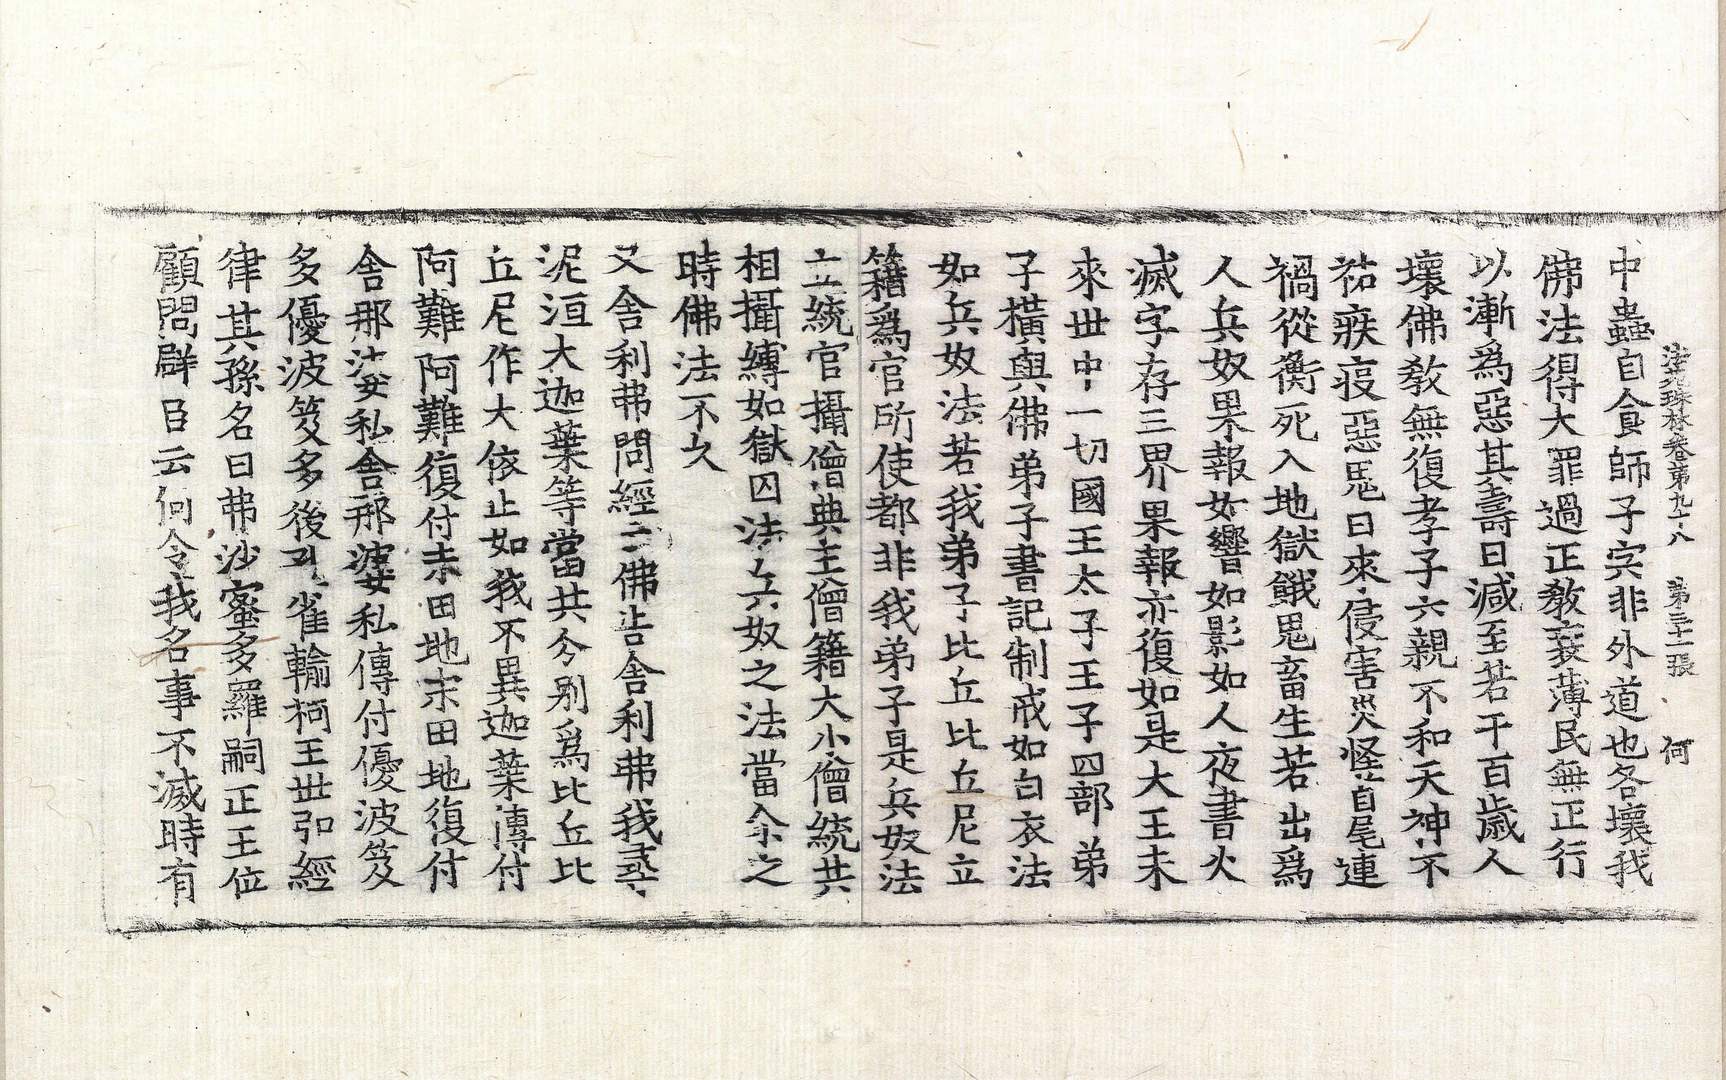 法苑珠林卷第九十八　第三十一張　何
中蟲自食師子宍非外道也各壞我
佛法得大罪過正教衰薄民無正行
以漸爲惡其壽日減至若干百歲人
壞佛教無復孝子六親不和天神不
祐疾疫惡鬼日來侵害災怪首尾連
禍從衡死入地獄餓鬼畜生若出爲
人兵奴果報如響如影如人夜書火
滅字存三界果報亦復如是大王未
來世中一切國王太子王子四部弟
子橫與佛弟子書記制戒如白衣法
如兵奴法若我弟子比丘比丘尼立
籍爲官所使都非我弟子是兵奴法
立統官攝僧典主僧籍大小僧統共
相攝縛如獄囚法兵奴之法當介之
時佛法不久
又舍利弗問經云佛告舍利弗我尋
泥洹大迦葉等當共分別爲比丘比
丘尼作大依止如我不異迦葉傳付
阿難阿難復付末田地末田地復付
舍那婆私舍那婆私傳付優波笈
多優波笈多後孔雀輸柯王世弘經
律其孫名曰弗沙蜜多羅嗣正王位
顧問群臣云何令我名事不滅時有